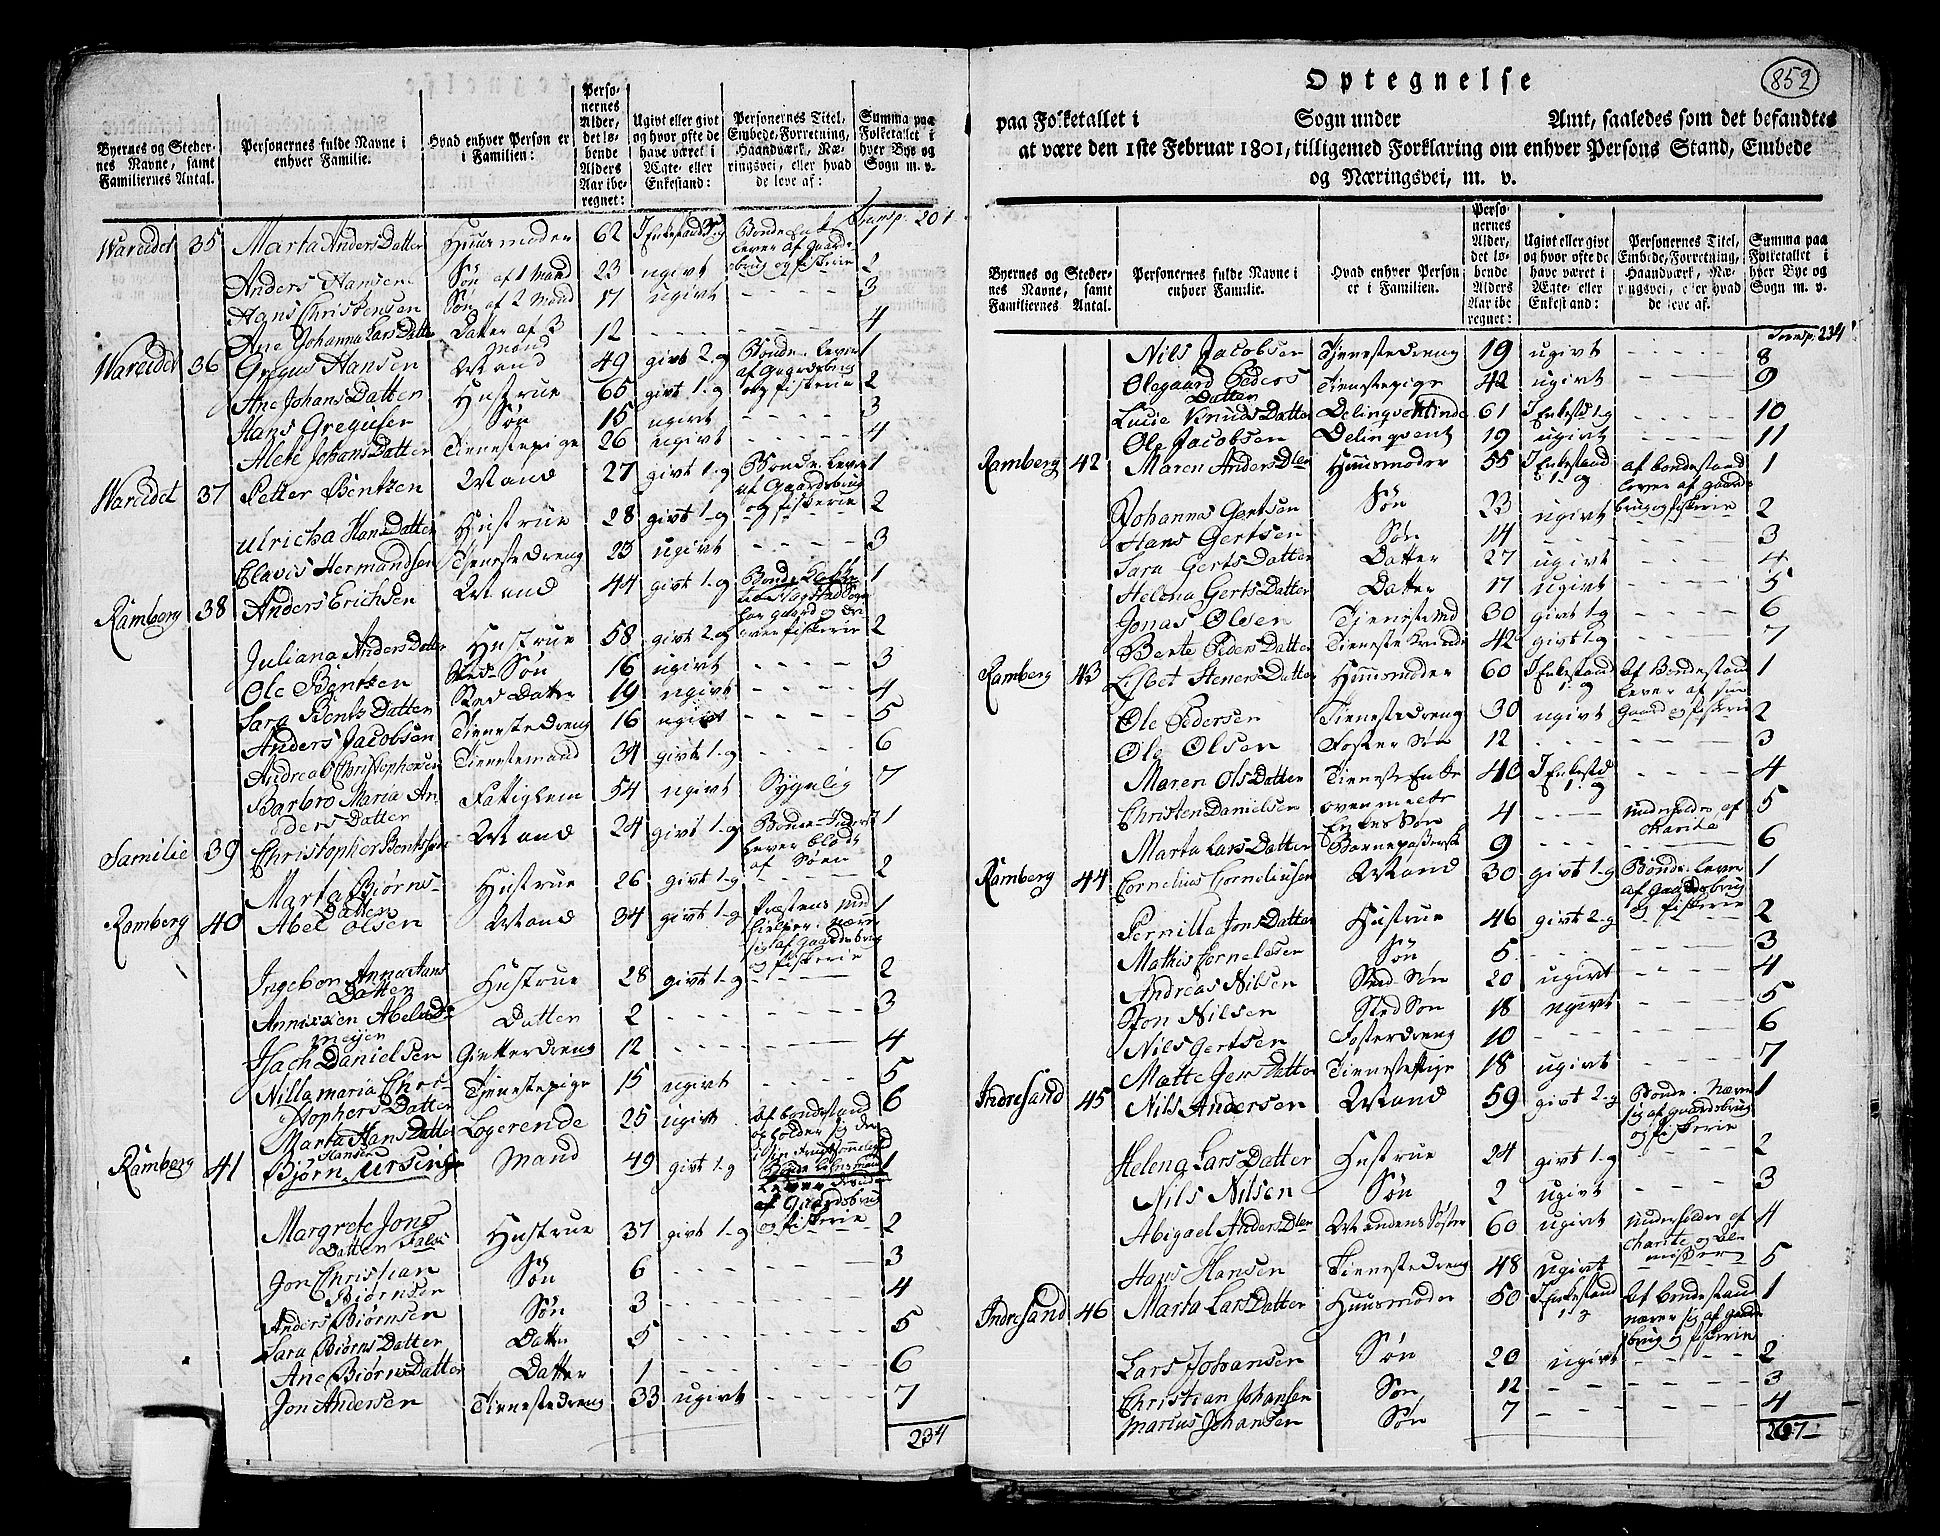 Byernes og Steder-
nes Navne, samt
Familiernes Antal.
Personernes fulde Navne i
enhver Familie.
Hvad enhver Person er
i Familien:
Perso-
nernes
Alder,
det lø-
bende
Alders
Aar ibe-
regnet:
Ugivt eller givt
og hvor ofte de
have været i
Ægte- eller
Enkestand:
Personernes Titel,
Embede, Forretning,
Haandværk, Næ-
ringsvei, eller hvad
de leve af:
Summa paa
Folketallet i
hver Bye og
Sogn m. v.
Transp: 201
Wareidet 35 Marta Anders Datter Huusmoder 62 I Enkestand 3-g 1
lever af gaards
brug og fiskerie
Anders Hansen Søn af 1 Mand 23 ugivt - - - - 2
Hans Christensen Søn af 2 Mand 17 ugivt - - - - 3
Ane Johanna Lars Datter Datter af 3 Mand 12 - - - - 4
Wareidet 36 Gregus Hansen Mand 49 givt 2-g Bonde. Lever 1
af Gaardsbrug
og fiskerie
Ane Johans Datter Hustrue 65 givt 1-g 2
Hans Gregusen Søn 15 ugivt - - - - 3
Alet Johans Datter Tienestepige 26 ugivt - - - - 4
Wareidet 37 Petter Bentzen Mand 27 givt 1-g Bonde. Lever 1
af Gaardsbrug
og fiskerie
Ulricha Hans Datter Hustrue 28 givt 1-g 2
Clavis Hermandsen Tjenestedreng 23 ugivt - - - - 3
Ramberg 38 Anders Erichsen Mand 44 givt 1-g Bonde 1
Juliana Anders Datter Hustrue 58 givt 2-g 2
Ole Bentzen Sted Søn 16 ugivt - - - - 3
Sara Bents Datter Sted Datter 19 ugivt - - - - 4
Anders Jacobsen Tienestedreng 16 ugivt - - - - 5
Andreas Christophersen Tienestemand 34 givt 1-g - - - - 6
Barbro Maria An
ders Datter Fattiglem 54 ugivt Sygelig 7
Familie 39 Christopher Bentsen Mand 24 givt 1-g Bonde 1
lever blods
af Søen
Marta Biørns-
Datter Hustrue 26 givt 1-g - - - - 2
Ramberg 40 Abel Olsen Mand 34 givt 1-g Præstens Med 1
hielper. nærer
sig af Gaardsbrug
og fiskerie
Ingebor Anna Hans
Datter Hustrue 28 givt 1-g 2
Annixen Abels
Meyer Datter 2 - - - - 3
Isach Danielsen Giætterdreng 12 - - - - 4
Nilla Maria Chri-
stophers Datter Tjenestepige 15 ugivt - - - - 5
Marta Hans Datter Logerende 25 ugivt af bondestand 6
og holder sig
Ramberg 41 Hansen
Bjørn Ursin Mand 49 givt 1-g Bonde Lensmand 1
Lever
af Gaardsbrug
og fiskerie
Margrete Jons
Datter Falch Hustrue 37 givt 1-g 2
Jon Christian
Biørnsen Søn 6 - - - - 3
Anders Biørnsen Søn 3 - - - - 4
Sara Biørns Datter Datter 5 - - - - 5
Ane Biørns Datter Datter 1 - - - - 6
Jon Andersen Tienestedreng 33 ugivt - - - - 7
234
852
Optegnelse
paa Folketallet i Sogn under Amt, saaledes som det befandtes
at være den 1ste Februar 1801, tilligemed Forklaring om enhver Persons Stand, Embede
og Næringsvei, m. v.
Byernes og Steder-
nes Navne, samt
Familiernes Antal.
Personernes fulde Navne i
enhver Familie.
Hvad enhver Person
er i Familien.
Perso-
nernes
Alder,
det lø-
bende
Alders
Aar ibe
regnet:
Ugivt eller givt
og hvor ofte de
have været i
Ægte- eller
Enkestand:
Personernes Titel,
Embede, Forretning,
Haandværk, Næ-
ringsvei, eller hvad
de leve af.
Summa paa
Folketallet i
hver Bye og
Sogn m. v.
Transp: 234
Nils Jacobsen Tjenestedreng 19 ugivt - - - - 8
Olegaard Peders
Datter Tienestepige 42 ugivt - - - - 9
Lucie Knuds Datter Delinqventinde 61 I Enkestd 1-g - - - - 10
Ole Jacobsen Delinqvent 19 ugivt - - - - 11
Ramberg 42 Maren Anders Dter Huusmoder 55 I Enkestand
1-g af bondestand 1
lever af gaards
brug og fiskerie
Johannes Gertsen Søn 23 ugivt 2
Hans Gertsen Søn 14 - - - - 3
Sara Gerts Datter Datter 27 ugivt - - - - 4
Helena Gerts Datter Datter 17 ugivt - - - - 5
Jonas Olsen Tjenestemd 30 givt 1-g - - - - 6
Berte Peders Datter Tieneste Kvinde 42 givt 1-g - - - - 7
Ramberg 43 Lisbet Steners Datter Huusmoder 60 I Enkestand
1-g Af Bondestand 1
lever af sin
Gaard og fiskerie
Ole Pedersen Tienestedreng 30 ugivt 2
Ole Olsen Foster Søn 12 - - - - 3
Maren Ols Datter Tieneste Enke 40 I Enkestd
1-g - - - - 4
Christen Danielsen ovenmelte
Enkes Søn 4 - - - underholdes af 5
Marta Lars Datter Barnepasserske 9 - - - - 6
Ramberg 44 Cornelius Corneliusen Mand 30 givt 1-g Bonde. Lever 1
af Gaardsbrug
og fiskerie
Pernilla Jons Datter Hustrue 46 givt 2-g 2
Mathis Cornelesen Søn 5 - - - - 3
Andreas Nilsen Sted Søn 20 ugivt - - - - 4
Jon Nilsen Sted Søn 18 ugivt - - - - 5
Nils Gertsen Fosterdreng 10 - - - - 6
Mætte Jens Datter Tienestepige 18 ugivt - - - - 7
Indresand 45 Nils Andersen Mand 59 givt 2-g Bonde. Nærer 1
sig af gaardsbrug
og fiskerie
Helena Lars Datter Hustrue 24 givt 1-g 2
Nils Nilsen Søn 2 ugivt - - - - 3
Abigael Anders Dter Mandens Søster 60 ugivt underholdes af 4
Hans Hansen Tienestedreng 48 ugivt 5
Indresand 46 Marta Lars Datter Huusmoder 50 I Enkestand
1-g Af bondestand 1
nærer sig af gaards
brug og fiskerie
Lars Johansen Søn 20 ugivt - - - - 2
Christian Johansen Søn 12 - - - - 3
Marius Johansen Søn 7 - - - - 4
267